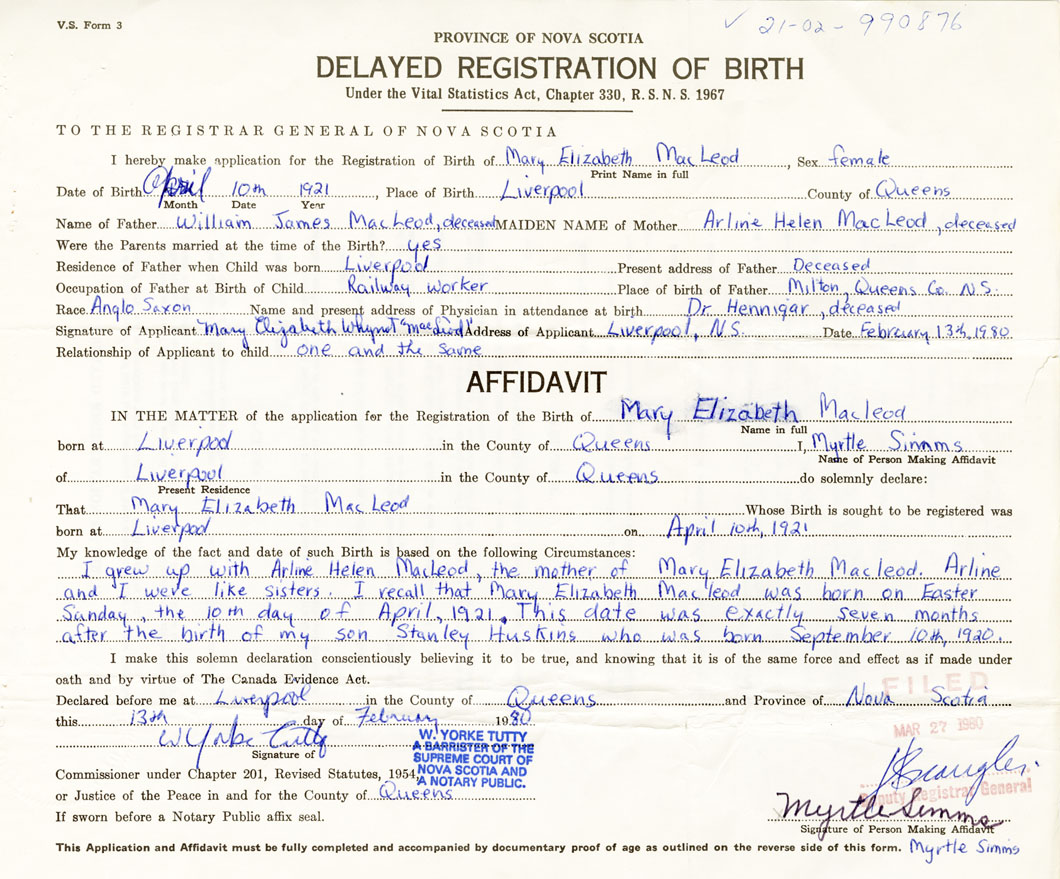 V.S. Form 3
✓ 21-02-990876
PROVINCE OF NOVA SCOTIA
DELAYED REGISTRATION OF BIRTH
Under the Vital Statistics Act, Chapter 330, R.S.N.S. 1967
TO THE REGISTRAR GENERAL OF NOVA SCOTIA
I hereby make application for the Registration of Birth of Mary Elizabeth MacLeod, Sex female
Print Name in full
Date of Birth April 10th 1921, Place of Birth Liverpool County of Queens
Month Date Year
Name of Father William James MacLeod, deceased MAIDEN NAME of Mother Arline Helen MacLeod, deceased
Were the Parents married at the time of the Birth? yes
Residence of Father when Child was born Liverpool Present address of Father Deceased
Occupation of Father at Birth of Child Railway Worker Place of birth of Father Milton, Queens Co. N.S.
Race Anglo Saxon Name and present address of Physician in attendance at birth Dr. Hennigar, deceased
Signature of Applicant Mary Elizabeth Whynot "MacLeod" Address of Applicant Liverpool, N.S. Date February 13th, 1980
Relationship of Applicant to child one and the same
AFFIDAVIT
IN THE MATTER of the application for the Registration of the Birth of Mary Elizabeth Macleod
Name in full
born at Liverpool in the County of Queens I, Myrtle Simms
Name of Person Making Affidavit
of Liverpool in the County of Queens do solemnly declare:
Present Residence
That Mary Elizabeth MacLeod Whose Birth is sought to be registered was
born at Liverpool on April 10th, 1921
My knowledge of the fact and date of such Birth is based on the following Circumstances:
I grew up with Arline Helen MacLeod, the mother of Mary Elizabeth Macleod. Arline
and I were like sisters. I recall that Mary Elizabeth Macleod was born on Easter
Sunday, the 10th day of April, 1921. This date was exactly seven months
after the birth of my son Stanley Huskins who was born September 10th, 1920.
I make this solemn declaration conscientiously believing it to be true, and knowing that it is of the same force and effect as if made under
oath and by virtue of The Canada Evidence Act.
Declared before me at Liverpool in the County of Queens and Province of Nova Scotia
FILED
this 13th day of February 1980
MAR 27 1980
W Yorke Tutty
Signature of
W. YORKE TUTTY
A BARRISTER OF THE
SUPREME COURT OF
NOVA SCOTIA AND
A NOTARY PUBLIC.
Commissioner under Chapter 201, Revised Statutes, 1954,
or Justice of the Peace in and for the County of Queens
Deputy Registrar General
Myrtle Simms
If sworn before a Notary Public affix seal.
Signature of Person Making Affidavit
This Application and Affidavit must be fully completed and accompanied by documentary proof of age as outlined on the reverse side of this form. Myrtle Simms